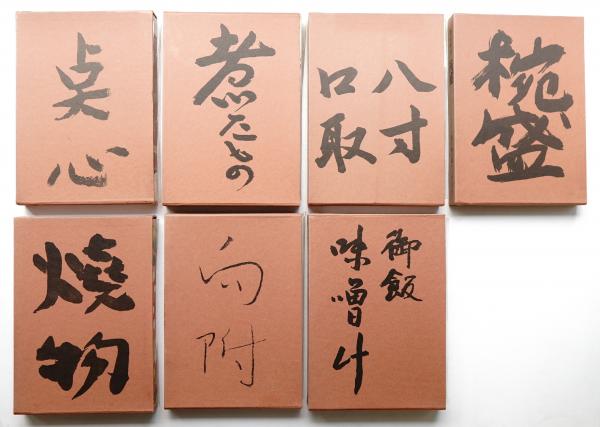 点心
煮たもの
八寸
口取
椀盛
燒物
向附
御飯
味噌汁